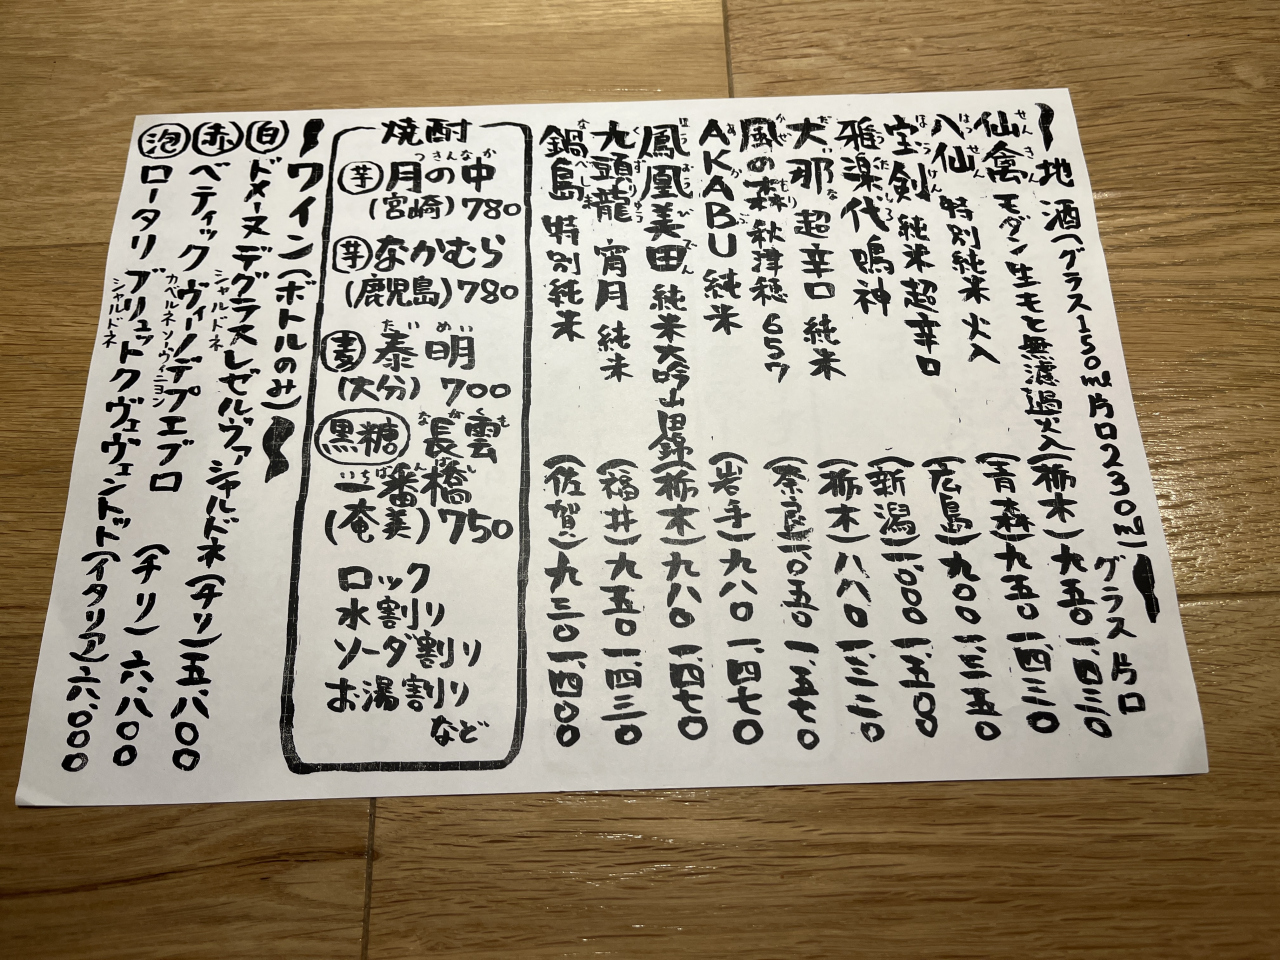 地酒(グラス150ml 片口230ml)
グラス 片口
せんきん
仙禽 モダン生モと無濾過火入(栃木)九五〇 一、四三〇
はっせん
八仙 特別純米 火入(青森)九五〇 一、四三〇
ほうけん
宝剣 純米超辛口(広島)九〇〇 一、三五〇
うたしろ
雅楽代 鳴神(新潟)一、〇〇〇 一、五〇〇
だいな
大那 超辛口 純米(栃木)八八〇 一、三二〇
かぜ もり
風の森 秋津穂 657(奈良)一、〇五〇 一、五七〇
あかぶ
AKABU 純米(岩手)九八〇 一、四七〇
ほうおうびでん
鳳凰美田 純米大吟山田錦(栃木)九八〇 一、四七〇
くずりゅう
九頭龍 宵月 純米(福井)九五〇 一、四三〇
なべしま
鍋島 特別純米(佐賀)九三〇 一、四〇〇
焼酎
つきんなか
芋 月の中
(宮崎)780
芋 なかむら
(鹿児島)780
たいめい
麦 泰明
(大分)700
ながくも
黒糖 長雲
いちばんばし
一番橋
(奄美)750
ロック
水割り
ソーダ割り
お湯割り
など
ワイン(ボトルのみ)
白 ドメーヌ デ グラス レゼルヴァ シャルドネ(チリ)五、八〇〇
シャルドネ
赤 ベティック ヴィーノ デ プエブロ(チリ)六、八〇〇
カベルネソーヴィニヨン
泡 ロータリ ブリュット クヴェ ヴェントット(イタリア)六、〇〇〇
シャルドネ